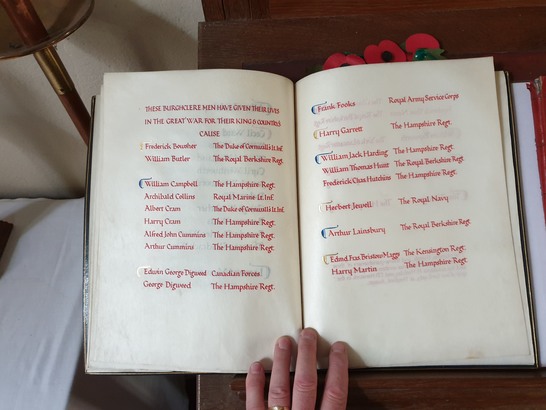 THESE BURGHCLERE MEN HAVE GIVEN THEIR LIVES
IN THE GREAT WAR FOR THEIR KING & COUNTRYS
CAUSE
Frederick Bowsher The Duke of Cornwalls Lt. Inf.
William Butler The Royal Berkshire Regt.
William Campbell The Hampshire Regt.
Archibald Collins Royal Marine Lt. Inf.
Albert Cram The Duke of Cornwalls Lt. Inf.
Harry Cram The Hampshire Regt.
Alfred John Cummins The Hampshire Regt.
Arthur Cummins The Hampshire Regt.
Edwin George Digweed Canadian Forces
George Digweed The Hampshire Regt.
Frank Fooks Royal Army Service Corps
Harry Garrett The Hampshire Regt.
William Jack Harding The Hampshire Regt.
William Thomas Hunt The Royal Berkshire Regt.
Frederick Chas Hutchins The Hampshire Regt.
Herbert Jewell The Royal Navy
Arthur Lainsbury The Royal Berkshire Regt.
Edmd. Fras. Bristow Maggs The Kensington Regt.
Harry Martin The Hampshire Regt.